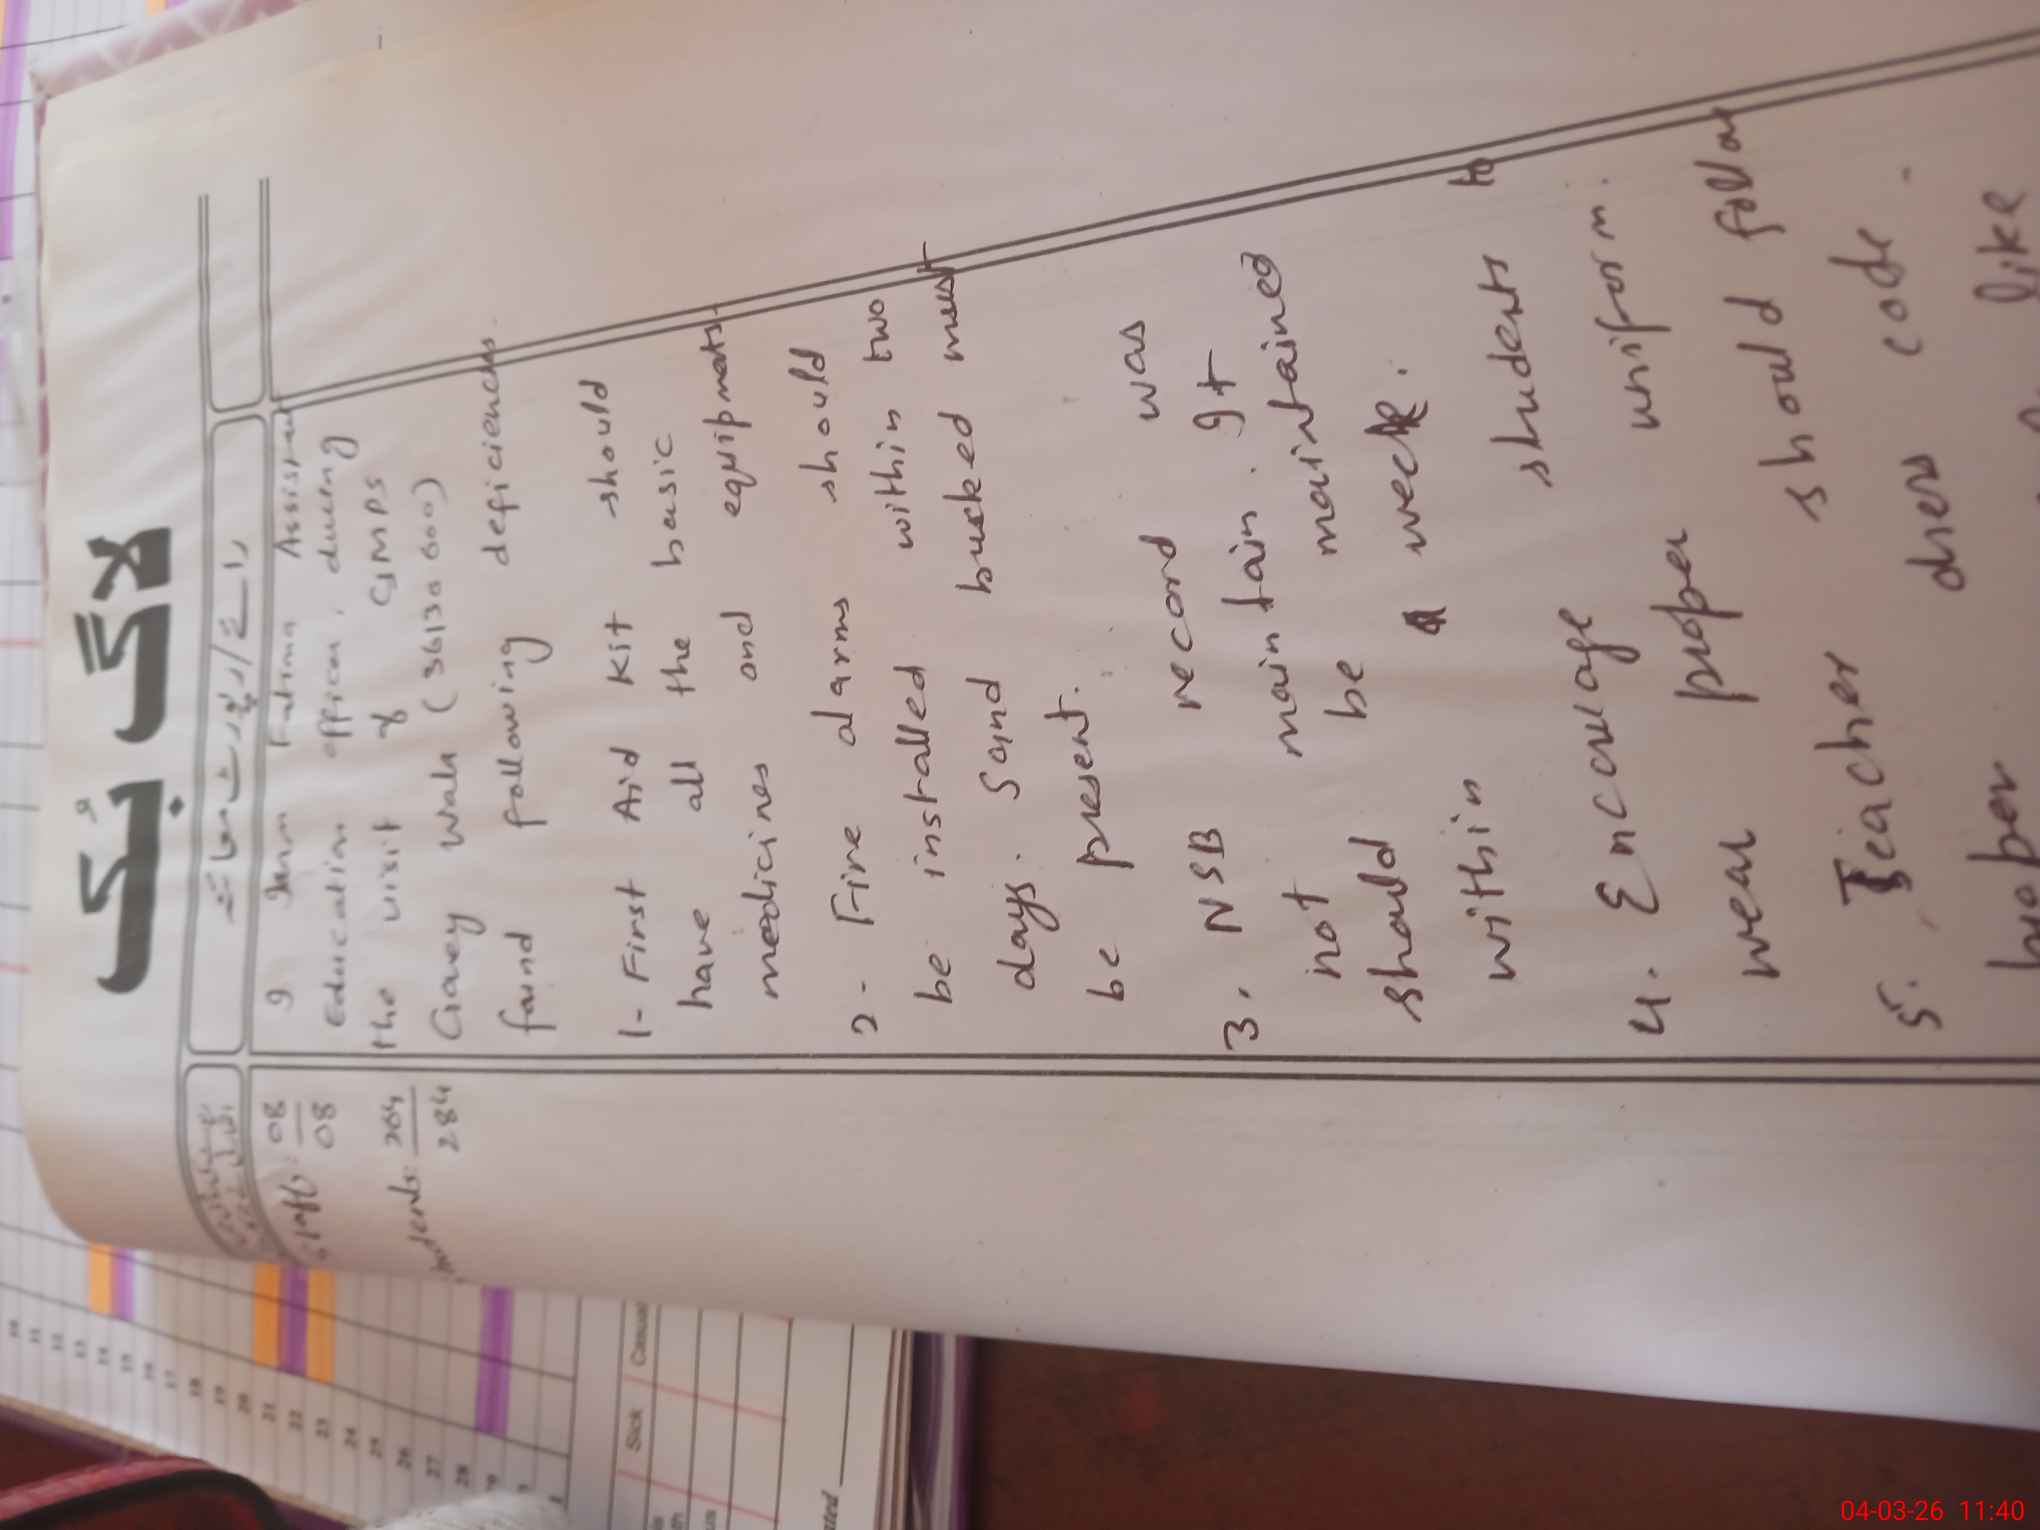 لاگ بُک
رائے/رپورٹ معائنہ
Staff: 08
08
Students: 264
284
I Iram Fatima Assistant
Education officer, during
the visit of GMPS
Garey Wala (36130600)
found following deficiencies.
1- First Aid Kit should
have all the basic
medicines and equipments.
2- Fire alarms should
be installed within two
days. Sand bucked must
be present.
3. NSB record was
not maintain. It
should be maintained
within a week.
4. Encourage students to
wear proper uniform.
5. Teacher should follow
proper dress code.
like
Sick Casual
10
11
12
13
14
15
16
17
18
19
20
21
22
23
24
25
26
27
28
04-03-26 11:40